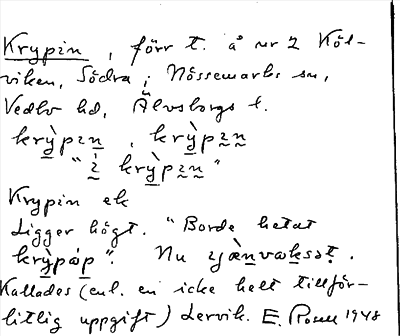 Krypin, förr t. å nr 2 Köl-
viken, Södra, i Nössemarks sn,
Vedbo hd, Älvsborgs l.
krỳpɪn, krỳpɪn
"ì krỳpɪn"
Krypin ek
Ligger högt. "Borde hetat
krỳpáp". Nu
Kallades (enl. en icke helt tillför-
litlig uppgift) Lervik. E. 1948